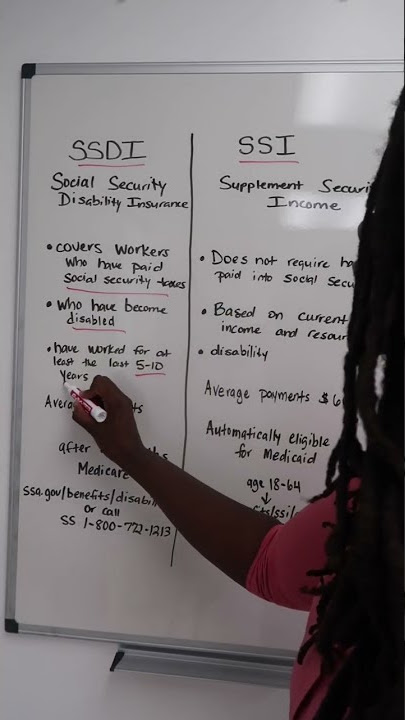 SSDI
Social Security
Disability Insurance
• covers workers
who have paid
social security taxes
• who have become
disabled
• have worked for at
least the last 5-10
years
after
Medicare
ssa.gov/benefits/disabil
or call
SS 1-800-772-1213
SSI
Supplement Securi
Income
• Does not require ha
paid into social secu
• Based on current
income and resour
• disability
Average payments $ 6
Automatically eligible
for Medicaid
age 18-64
↓
fits/ssi/